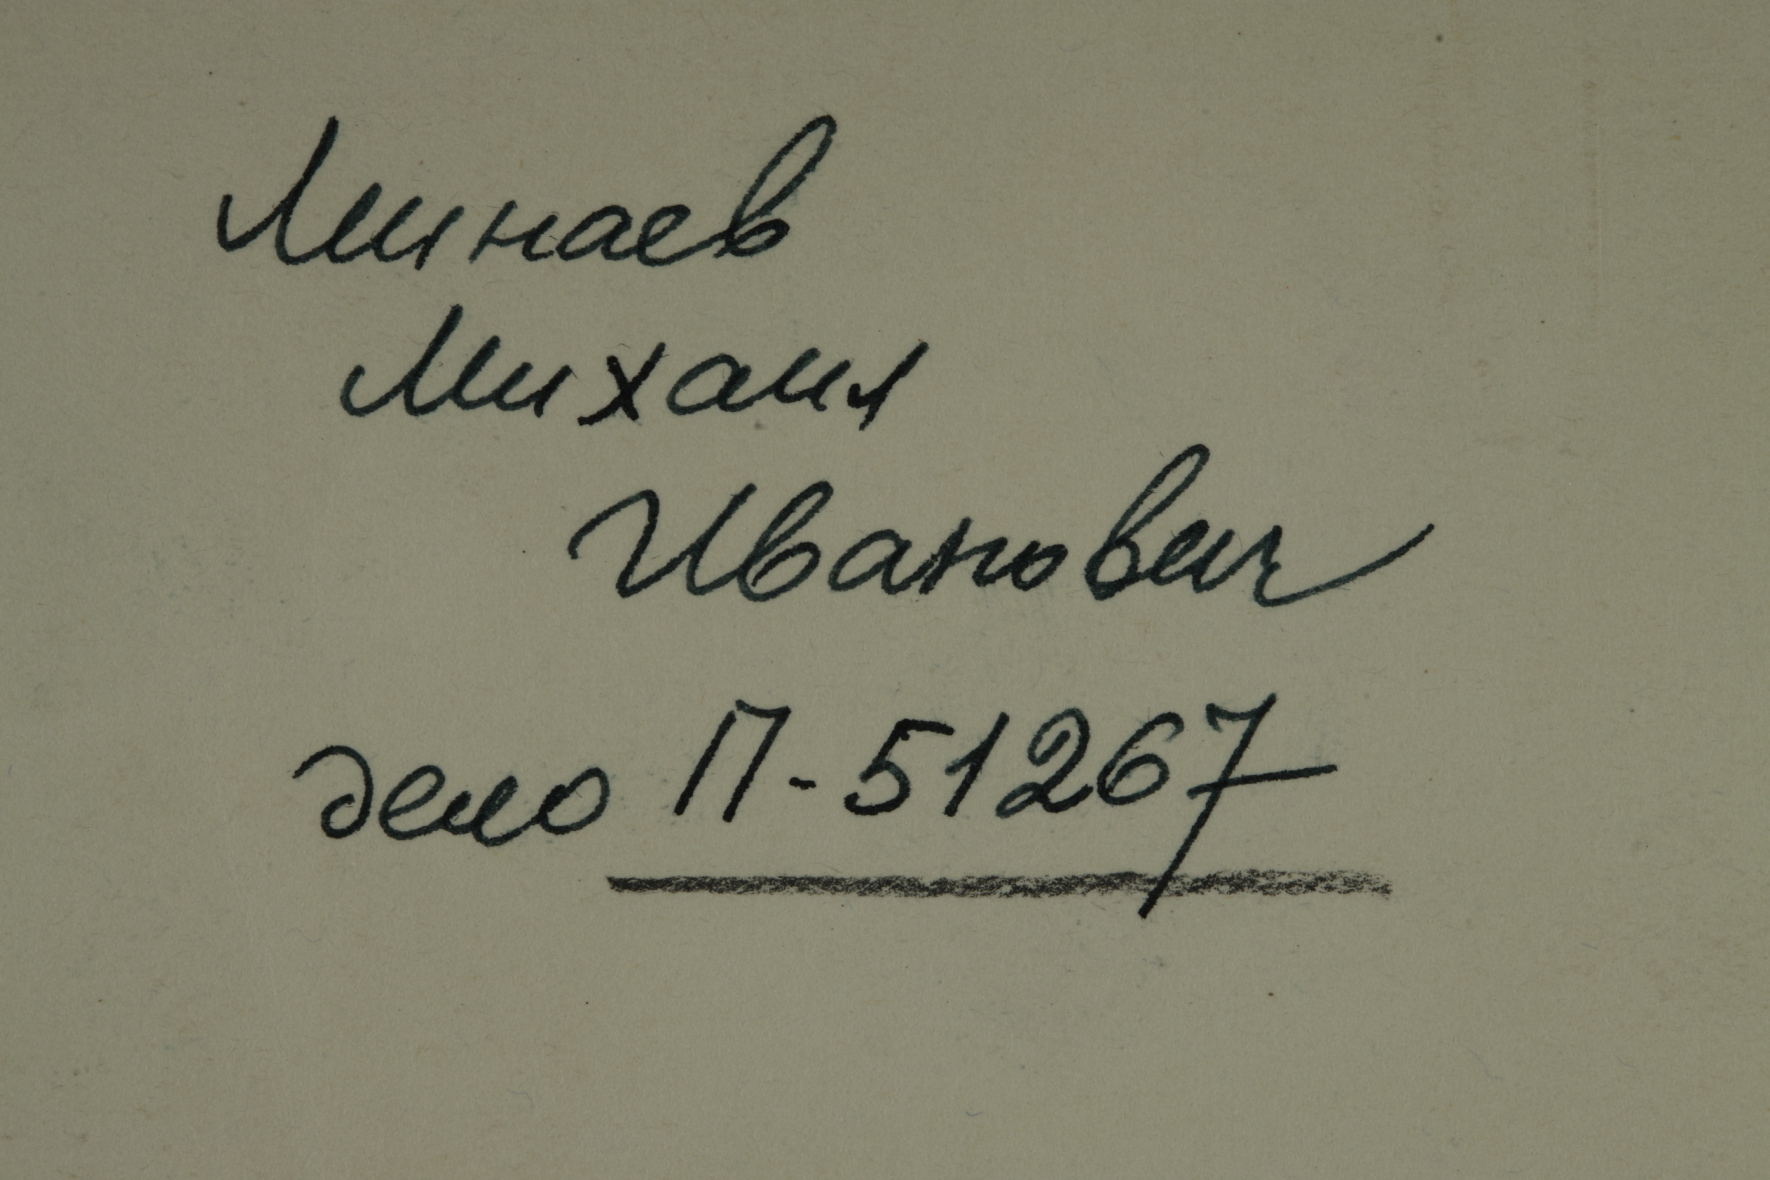 Минаев
Михаил
Иванович
дело П-51267